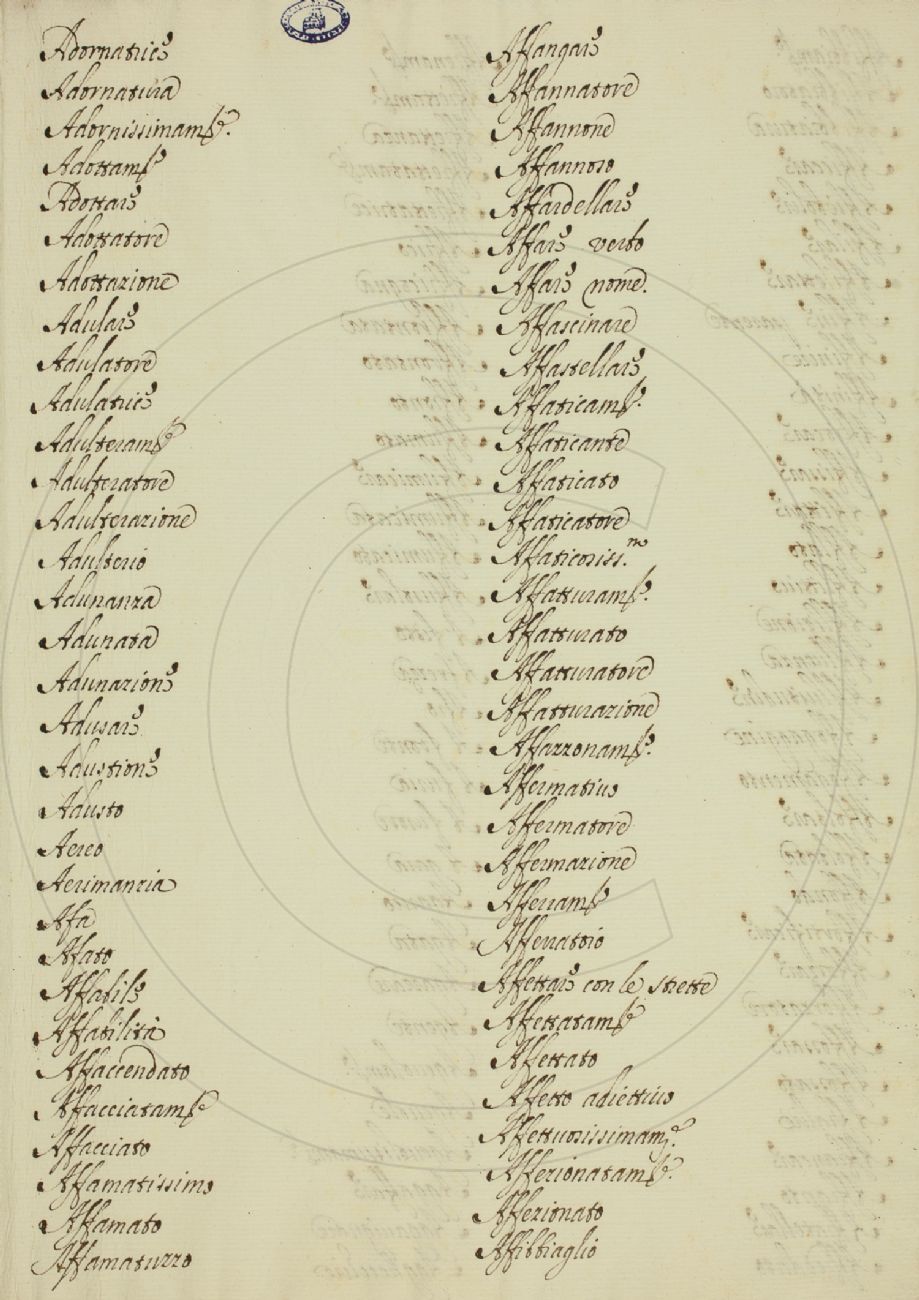 Adornatrice
Adornatura
Adornissimam.te
Adottam.te
Adottare
Adottatore
Adottazione
Adulare
Adulatore
Adulatrice
Adulteram.te
Adulteratore
Adulterazione
Adulterio
Adunanza
Adunata
Adunazione
Adusare
Adustione
Adusto
Aereo
Aerimanzia
Afa
Afato
Affabile
Affabilità
Affaccendato
Affacciatam.te
Affacciato
Affamatissimo
Affamato
Affamatuzzo
Affangare
Affannatore
Affannone
Affannoso
Affardellare
Affare verbo
Affare nome.
Affascinare
Affastellare
Affaticam.te
Affaticante
Affaticato
Affaticatore
Affaticosiss.mo
Affatturam.te
Affatturato
Affatturatore
Affatturazione
Affazzonam.te
Affermativo
Affermatore
Affermazione
Afferram.te
Afferratoio
Affettare con le strette
Affettatam.te
Affettato
Affetto adiettivo
Affettuosissimam.e
Affezionatam.te
Affezionato
Affibbiaglio